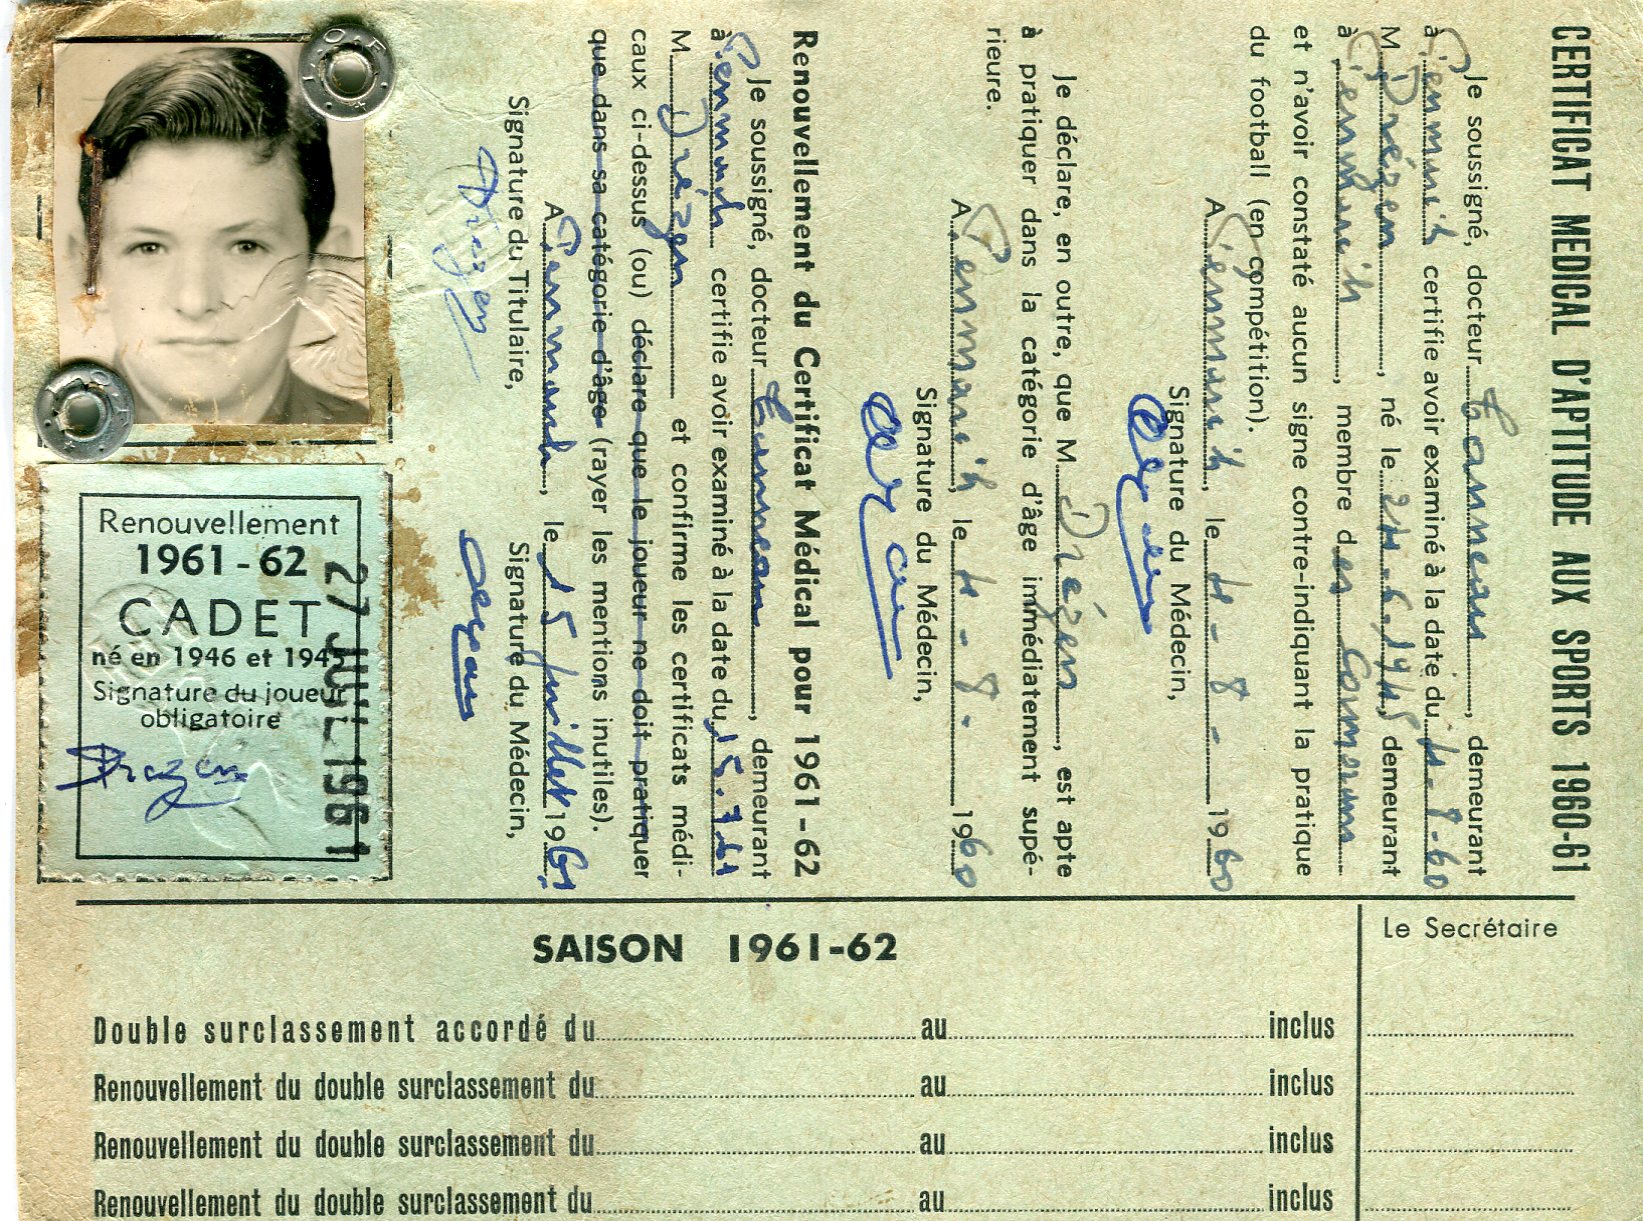 CERTIFICAT MEDICAL D'APTITUDE AUX SPORTS 1960-61
Je soussigné, docteur demeurant
à certifie avoir examiné à la date du 4-8-60
M. Drézen, né le 24-6-1945, demeurant
à, membre des
et n'avoir constaté aucun signe contre-indiquant la pratique
du football (en compétition).
A, le 4-8-1960
Signature du Médecin,
Je déclare, en outre, que M. Drézen, est apte
à pratiquer dans la catégorie d'âge immédiatement supé-
rieure.
A, le 4-8-1960
Signature du Médecin,
Renouvellement du Certificat Médical pour 1961-62
Je soussigné, docteur, demeurant
à certifie avoir examiné à la date du 15.7.61
M. Drézen et confirme les certificats médi-
caux ci-dessus (ou) déclare que le joueur ne doit pratiquer
que dans sa catégorie d'âge (rayer les mentions inutiles).
A, le 15 juillet 1961
Signature du Titulaire, Signature du Médecin,
Drézen
Renouvellement
1961-62
CADET
né en 1946 et 1945
Signature du joueur
obligatoire
Drezen
27 JUIL 1961
SAISON 1961-62
Le Secrétaire
Double surclassement accordé du au inclus
Renouvellement du double surclassement du au inclus
Renouvellement du double surclassement du au inclus
Renouvellement du double surclassement du au inclus